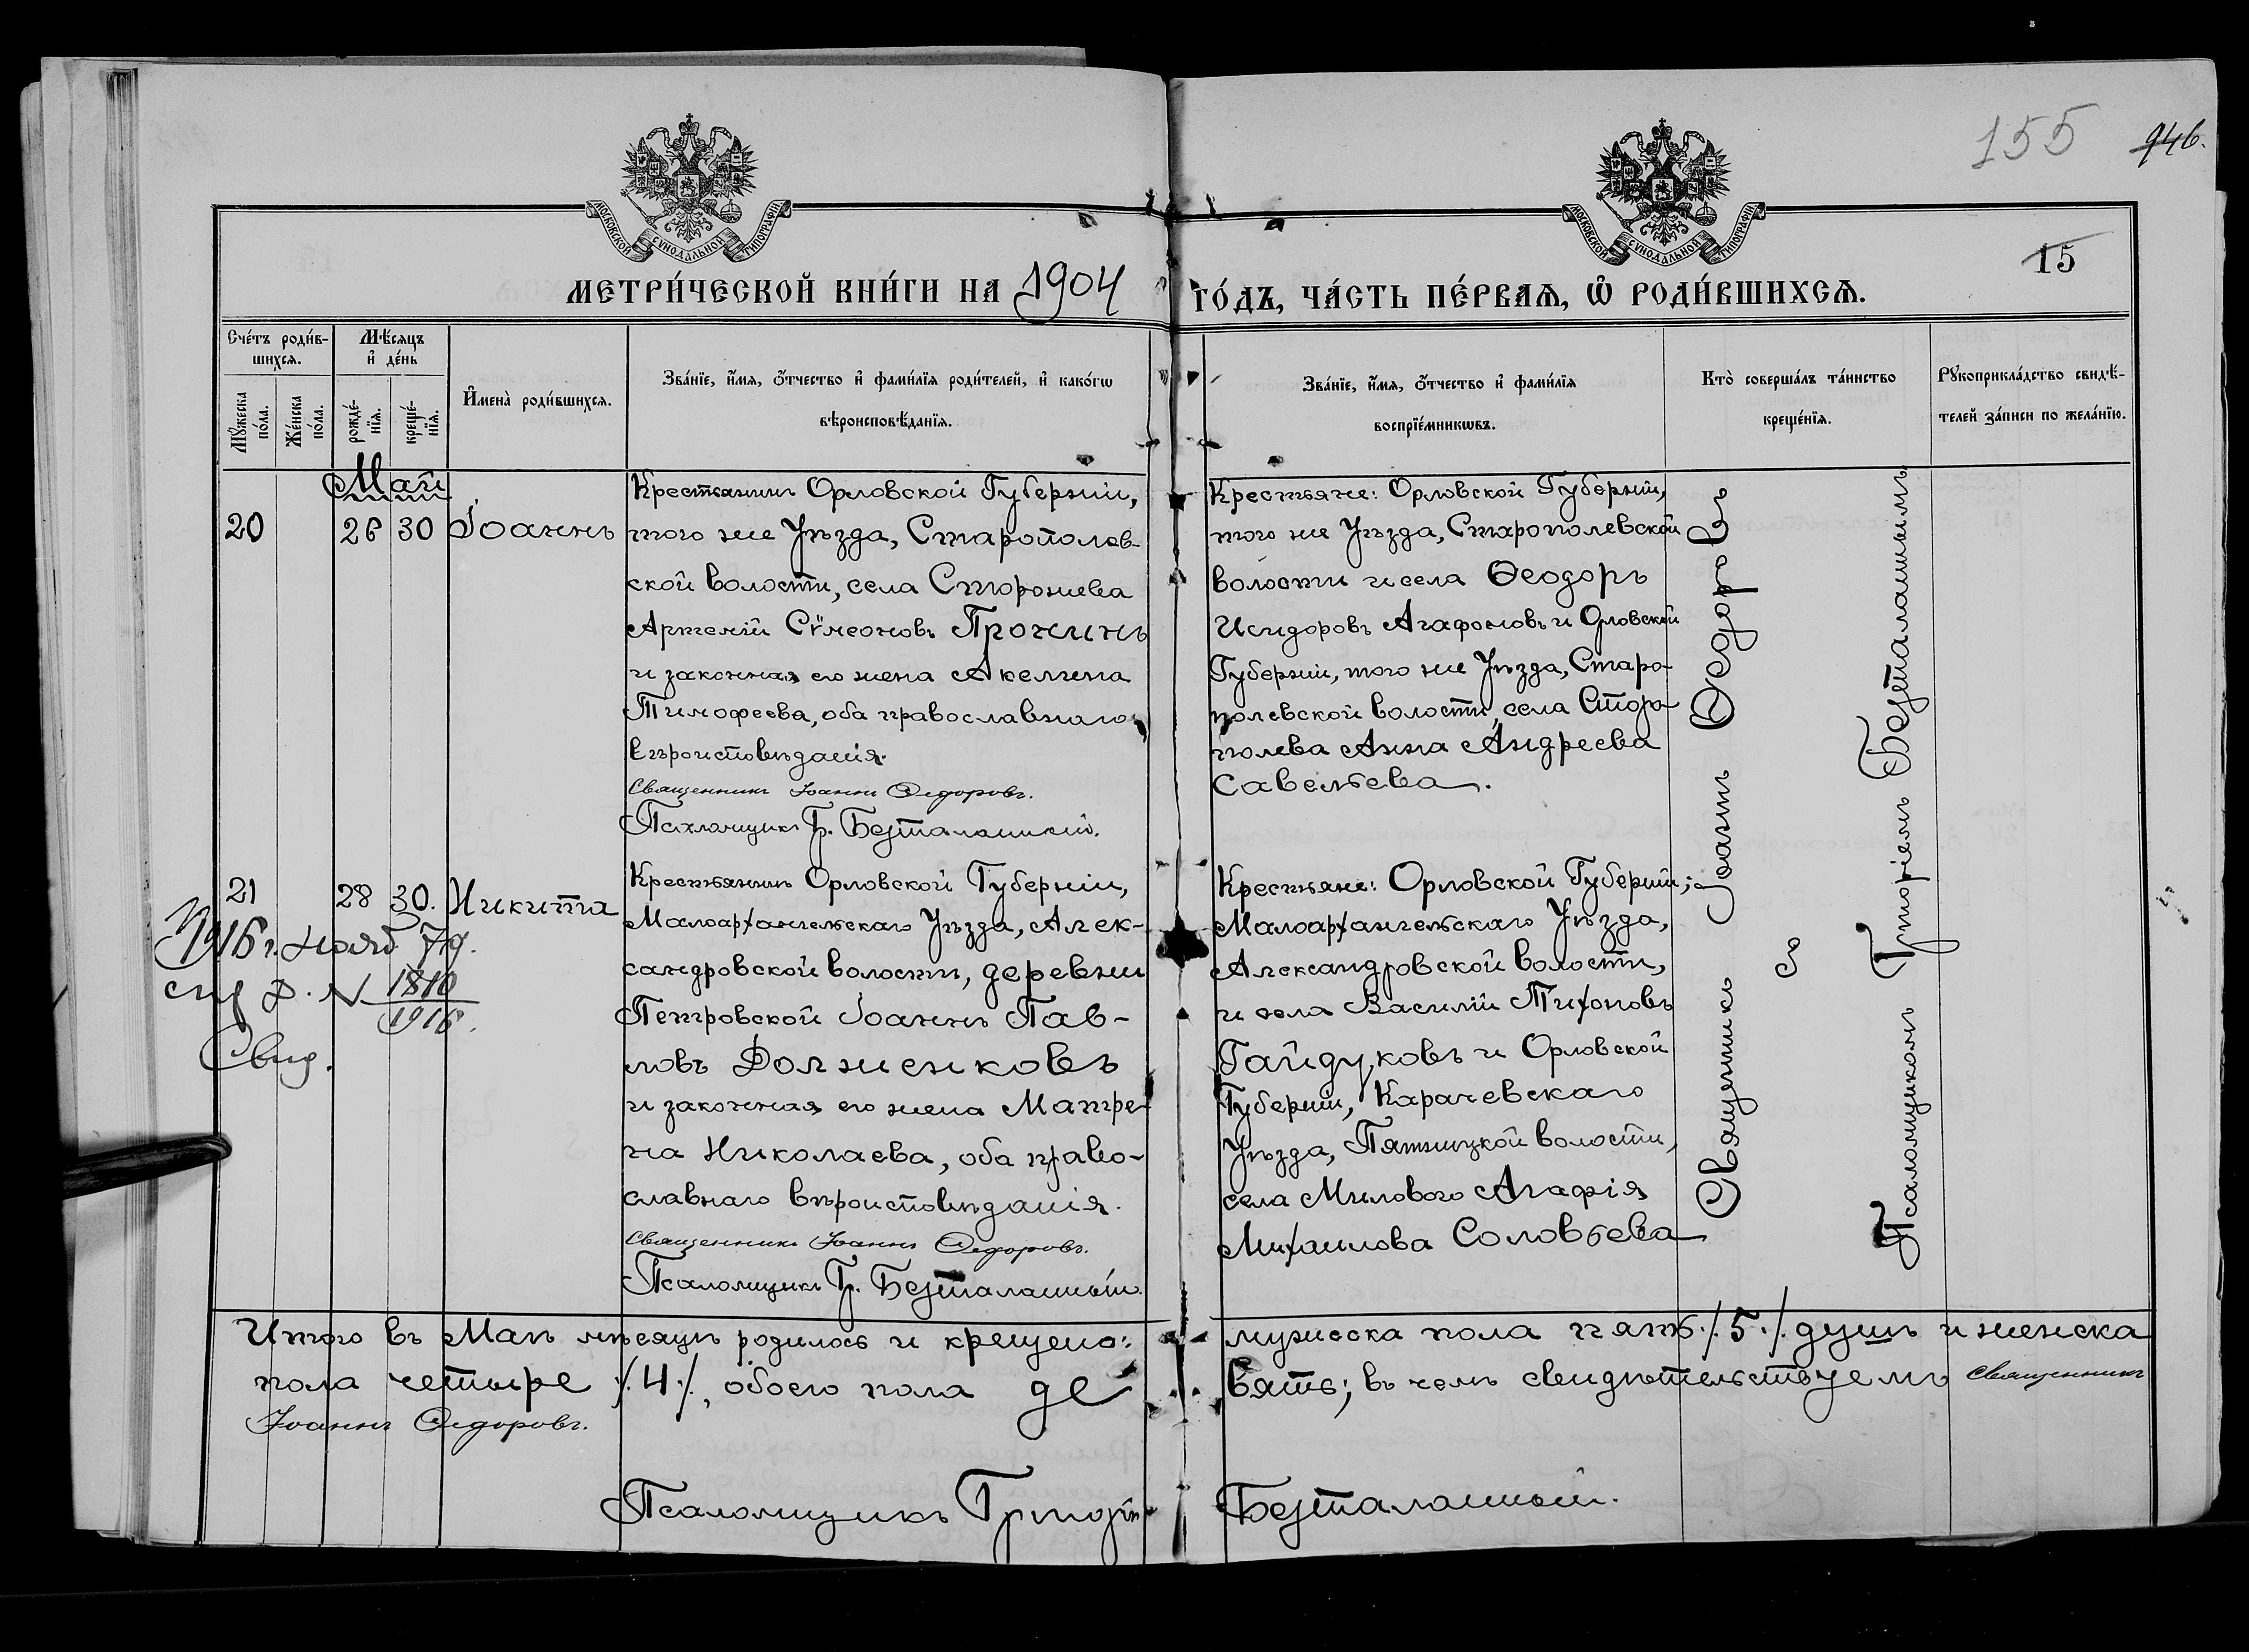 155 946.
МОСКОВСКОЙ СѴНОДАЛЬНОЙ ТИПОГРАФІИ
МОСКОВСКОЙ СѴНОДАЛЬНОЙ ТИПОГРАФІИ
15
МЕТРИ́ЧЕСКОЙ КНИ́ГИ НА 1904 ГО́ДЪ, ЧА́СТЬ ПЕ́РВАѦ, Ѽ РОДИ́ВШИХСѦ.
Сче́тъ роди́в-
шихсѧ.
Мꙋ́жеска по́ла.
Же́нска по́ла.
Мѣ́сѧцъ
и҆ де́нь
рожде́-
нїѧ.
креще́-
нїѧ.
И҆мена̀ роди́вшихсѧ.
Зва́нїе, и҆́мѧ, ѻ҆́тчество и҆ фами́лїѧ роди́телей, и҆ како́гѡ
вѣроисповѣ́данїѧ.
Зва́нїе, и҆́мѧ, ѻ҆́тчество и҆ фами́лїѧ
воспрїе́мникѡвъ.
Кто̀ соверша́лъ та́инство
креще́нїѧ.
Рꙋкоприкла́дство свидѣ́-
телей за́писи по жела́нїю.
Май
20 26 30 Іоаннъ
Крестьянинъ Орловской Губерніи,
того же Уѣзда, Старополев-
ской волости, села Сторожева
Артемій Сѵмеоновъ Пронинъ
и законная его жена Акелина
Тимофеева, оба православнаго
вѣроисповѣданія.
Священникъ Іоаннъ Ѳедоровъ.
Псаломщикъ Гр. Безталанный.
Крестьяне: Орловской Губерніи,
того же Уѣзда, Старополевской
волости и села Ѳеодоръ
Исидоровъ Агафоновъ и Орловской
Губерніи, того же Уѣзда, Старо-
полевской волости, села Старо-
полева Анна Андреева
Савельева.
21 28 30. Никита
1916 г. нояб 7 д.
1810
1916.
Свид.
Крестьянинъ Орловской Губерніи,
Малоархангельскаго Уѣзда, Алек-
сандровской волости, деревни
Петровской Іоаннъ Пав-
ловъ Долженковъ
и законная его жена Матре-
на Николаева, оба право-
славнаго вѣроисповѣданія.
Священникъ Іоаннъ Ѳедоровъ.
Псаломщикъ Гр. Безталанный.
Крестьяне: Орловской Губерніи,
Малоархангельскаго Уѣзда,
Александровской волости,
и села Василій Тихоновъ
Гайдуковъ и Орловской
Губерніи, Карачевскаго
Уѣзда, Пятницкой волости,
села Милового Агафія
Михаилова Соловьева
Священникъ Іоаннъ Ѳеодоровъ
съ
Псаломщикомъ Григоріемъ Безталаннымъ
Итого въ Маѣ мѣсяцѣ родилось и крещено: мужеска пола пять ./.5./. душъ и женска
пола четыре ./.4./., обоего пола девять; въ чемъ свидѣтельствуемъ Священникъ
Іоаннъ Ѳедоровъ.
Псаломщикъ Григорій Безталанный.